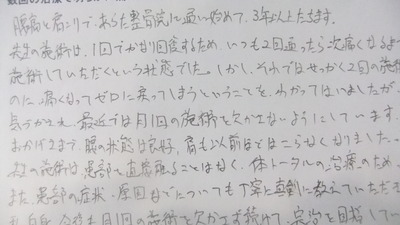 腰痛と肩こりで、あらた整骨院に通い始めて、3年以上たちます。
先生の施術は、1回でかなり回復するため、いつも2回通ったら次痛くなるまで
施術していただくという状態でした。しかし、それではせっかく2回の施術
のに、痛くなってゼロに戻ってしまうということを、わかってはいましたが、
最近では月1回の施術を欠かさないようにしています。
おかげさまで、腰の状態は良好、肩も以前ほどはこらなくなりました。
の施術は、患部を直接触ることはなく、体トータルの治療のため、
また、患部の症状、原因などについても丁寧に真剣に教えていただき
今後も月1回の施術を欠かさず続けて、完治を目指してい